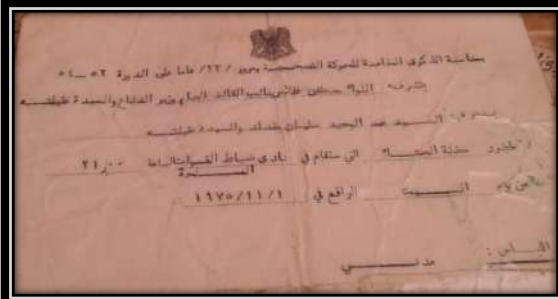 بمناسبة الذكرى الخامسة للحركة التصحيحية ومرور /٢٢/ عاما على الدورة ٥٢ – ٥٤
يتشرف اللواء نائب القائد العام وزير الدفاع والسيدة عقيلته
السيد عبد سليمان والسيدة عقيلته
لحضور حفلة العشاء التي ستقام في نادي ضباط القوات الساعة ٢١,٠٠
المسلحة
من يوم السبت الواقع في ١ / ١١ / ١٩٧٥
اللباس : مدني